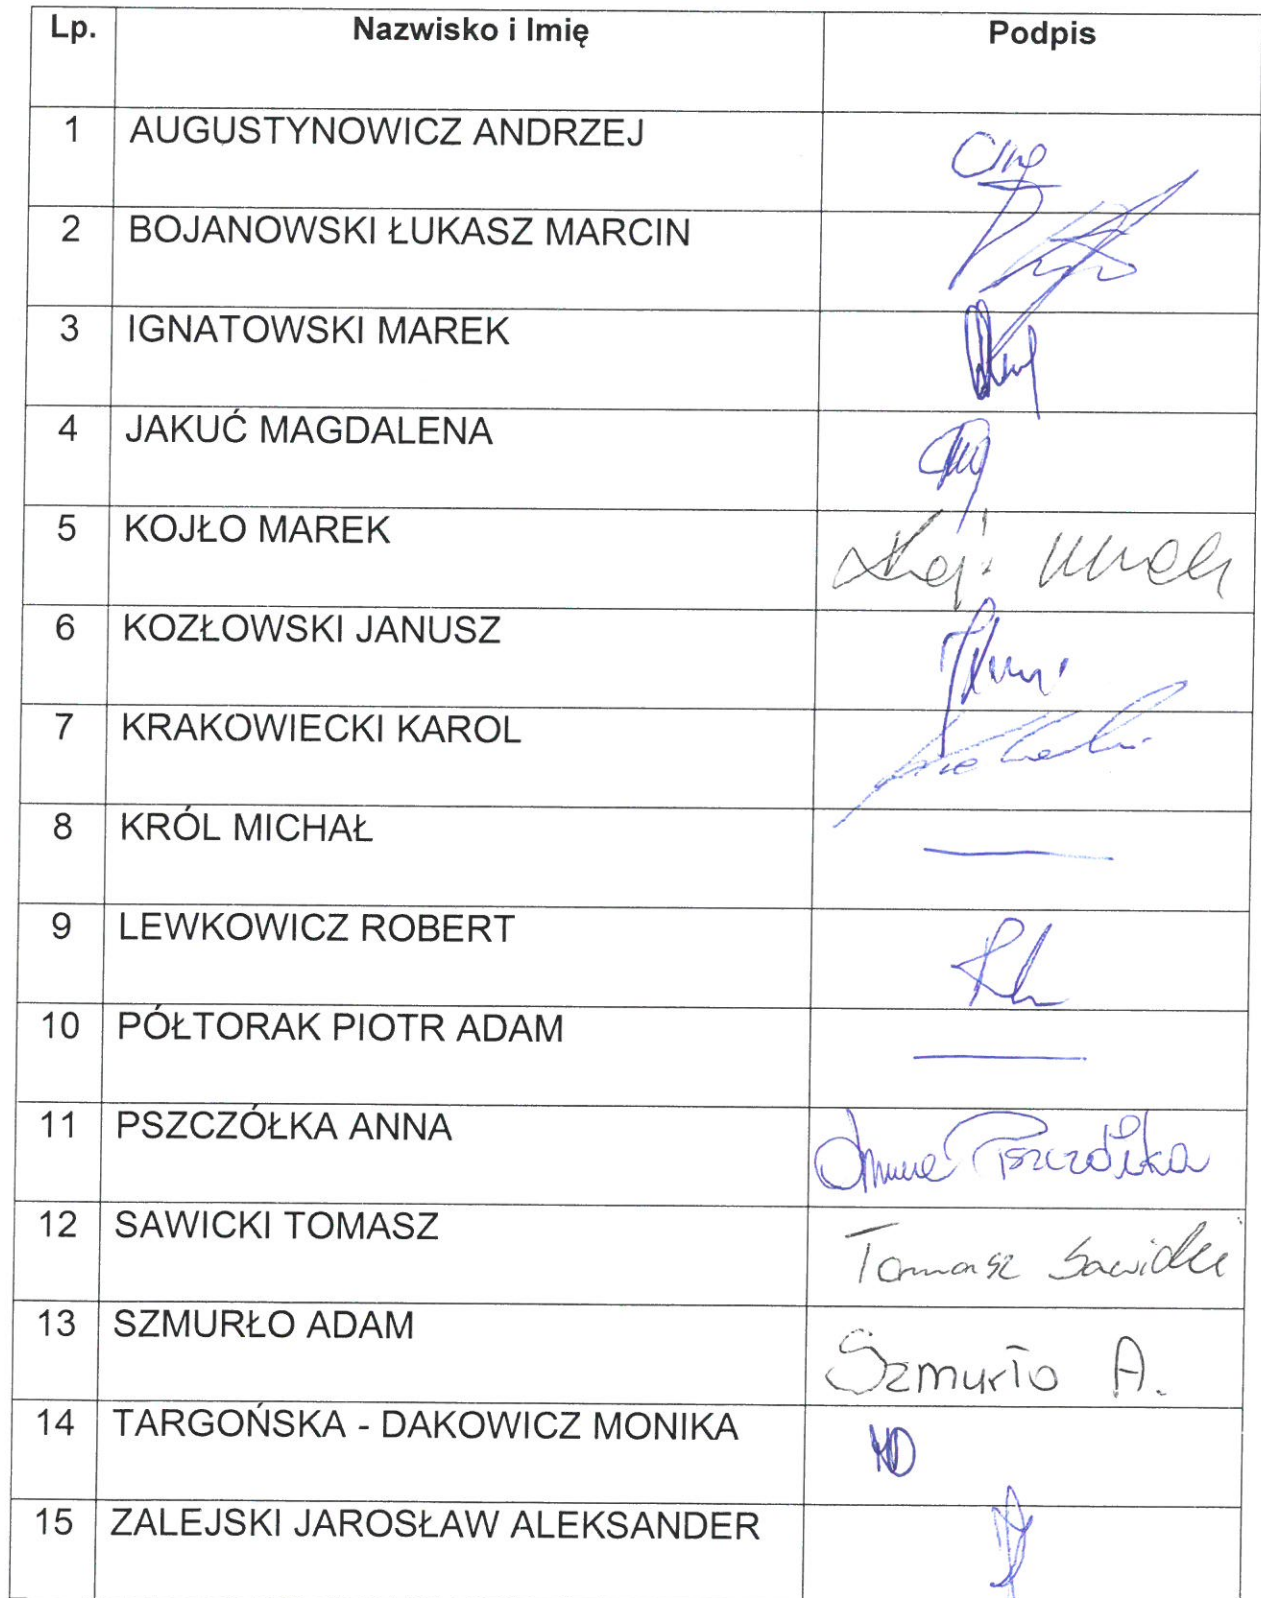 Lp. Nazwisko i Imię Podpis
1 AUGUSTYNOWICZ ANDRZEJ
2 BOJANOWSKI ŁUKASZ MARCIN
3 IGNATOWSKI MAREK
4 JAKUĆ MAGDALENA
5 KOJŁO MAREK
6 KOZŁOWSKI JANUSZ
7 KRAKOWIECKI KAROL
8 KRÓL MICHAŁ
9 LEWKOWICZ ROBERT
10 PÓŁTORAK PIOTR ADAM
11 PSZCZÓŁKA ANNA Anna Pszczółka
12 SAWICKI TOMASZ Tomasz Sawicki
13 SZMURŁO ADAM Szmurło A.
14 TARGOŃSKA - DAKOWICZ MONIKA MD
15 ZALEJSKI JAROSŁAW ALEKSANDER